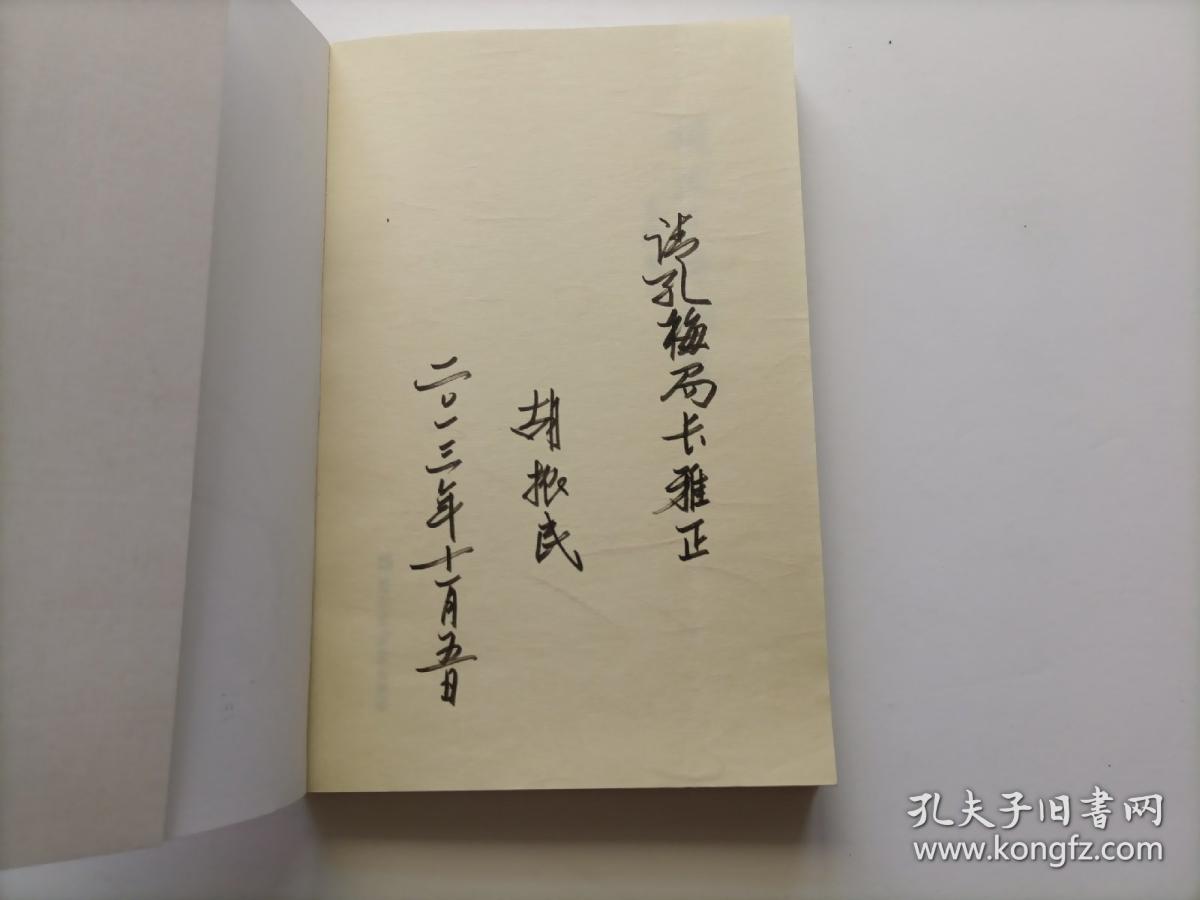 请孔梅局长雅正
胡振民
二〇一三年十一月五日
孔夫子旧书网
www.kongfz.com